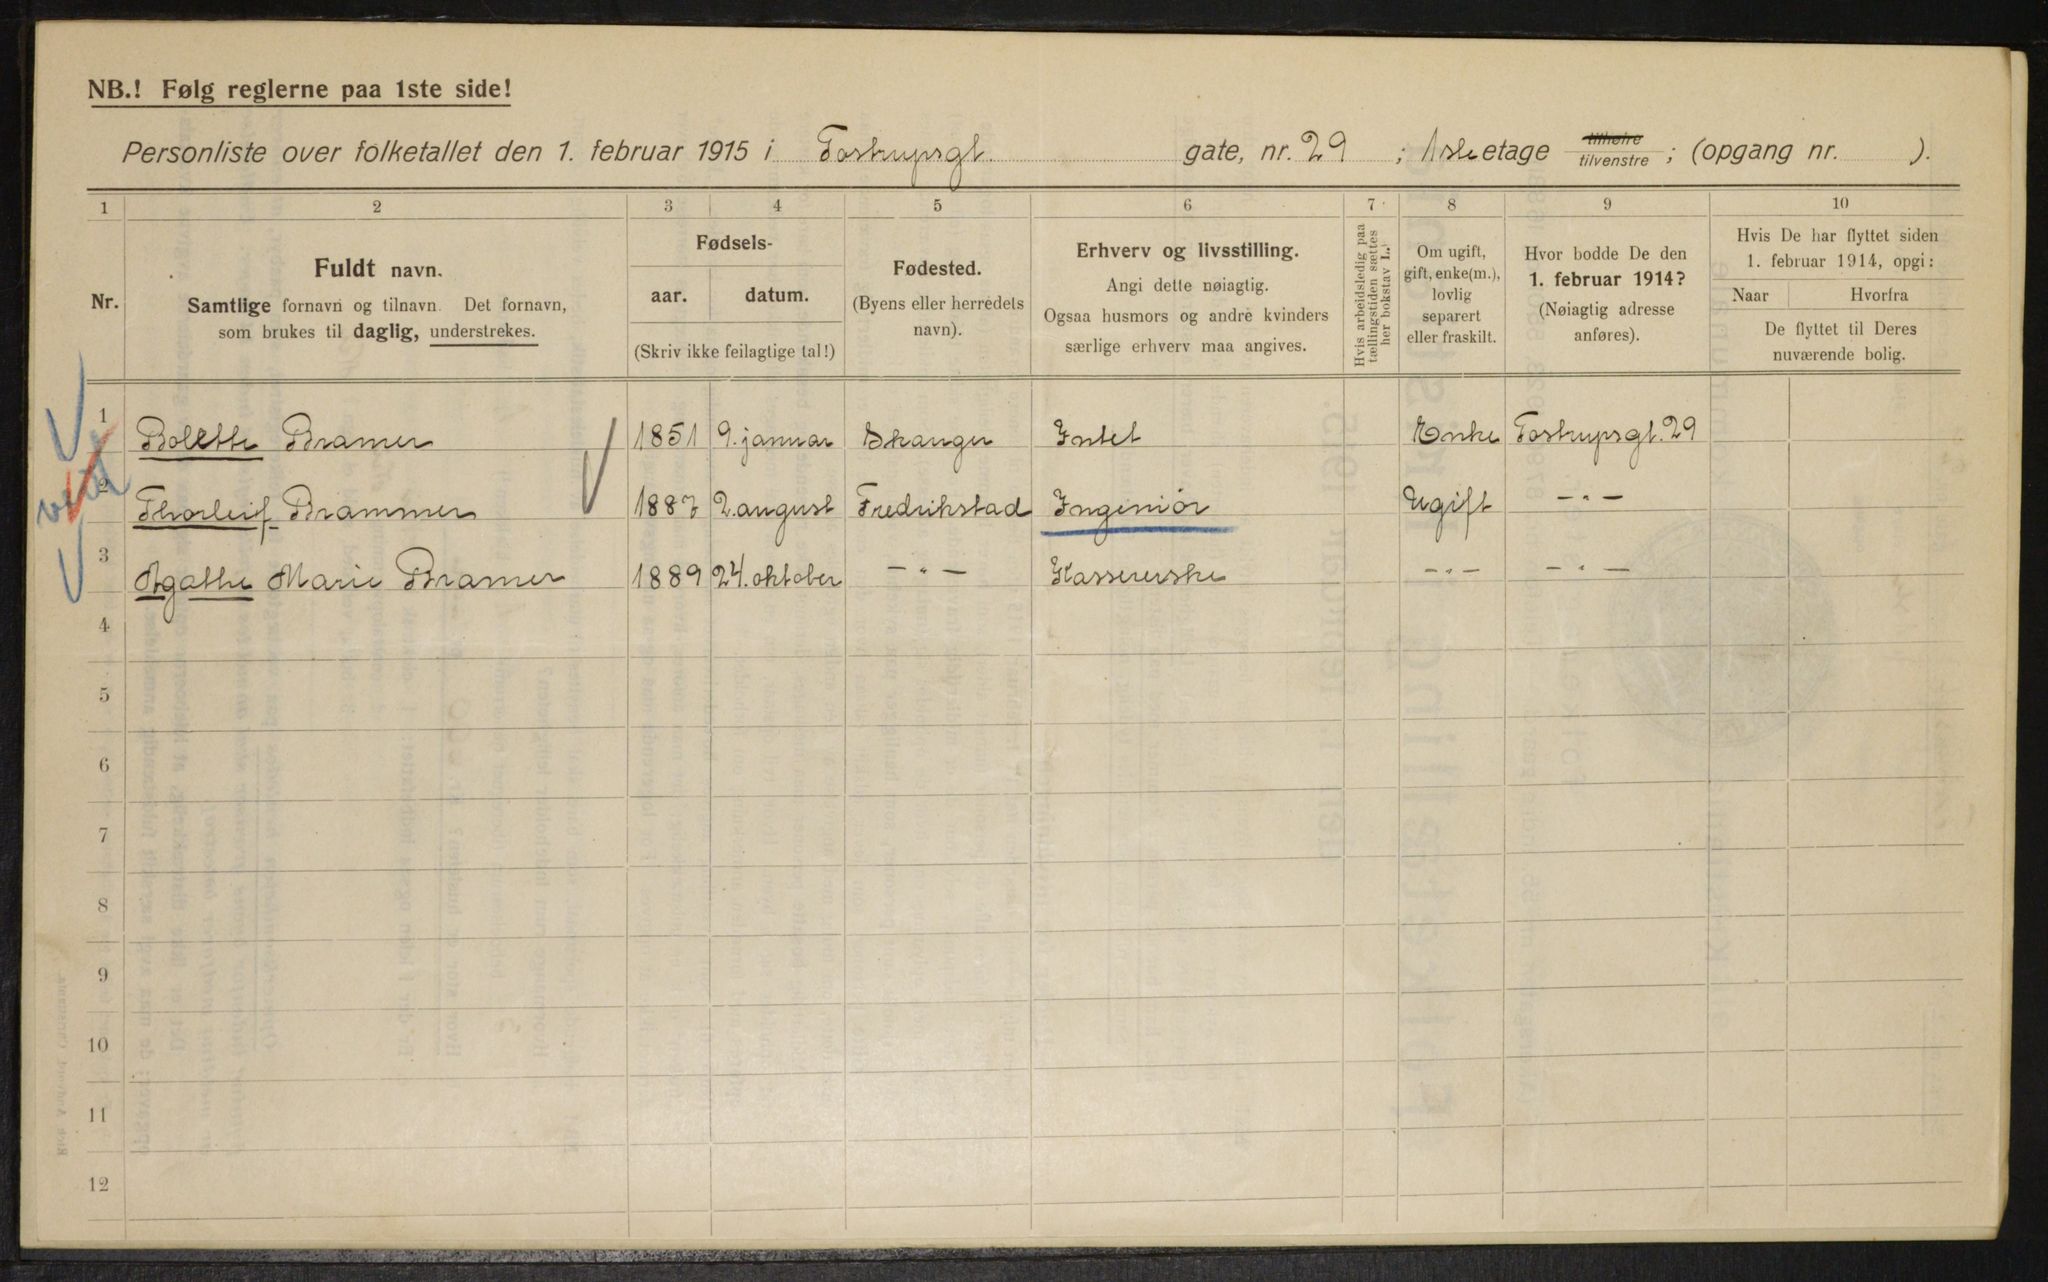 NB.! Følg reglerne paa 1ste side!
Personliste over folketallet den 1. februar 1915 i Tostrupsgt. gate, nr. 29 ; 1ste etage tilhøire tilvenstre ; (opgang nr. ).
1 2 3 4 5 6 7 8 9 10
Nr.
Fuldt navn.
Samtlige fornavn og tilnavn. Det fornavn,
som brukes til daglig, understrekes.
Fødsels-
aar. datum.
(Skriv ikke feilagtige tal!)
Fødested.
(Byens eller herredets
navn).
Erhverv og livsstilling.
Angi dette nøiagtig.
Ogsaa husmors og andre kvinders
særlige erhverv maa angives.
Hvis arbeidsledig paa
tællingstiden sættes
her bokstav L.
Om ugift,
gift, enke(m.),
lovlig
separert
eller fraskilt.
Hvor bodde De den
1. februar 1914?
(Nøiagtig adresse
anføres).
Hvis De har flyttet siden
1. februar 1914, opgi:
Naar Hvorfra
De flyttet til Deres
nuværende bolig.
1 Bolette Bramer 1851 9. januar Skanger Intet Enke Tostrupsgt. 29
2 Thorleif Brammer 1887 2. august Fredrikstad Ingeniør Ugift -"-
3 Agathe Marie Bramer 1889 24. oktober -"- Kassererske -"- -"-
4
5
6
7
8
9
10
11
12